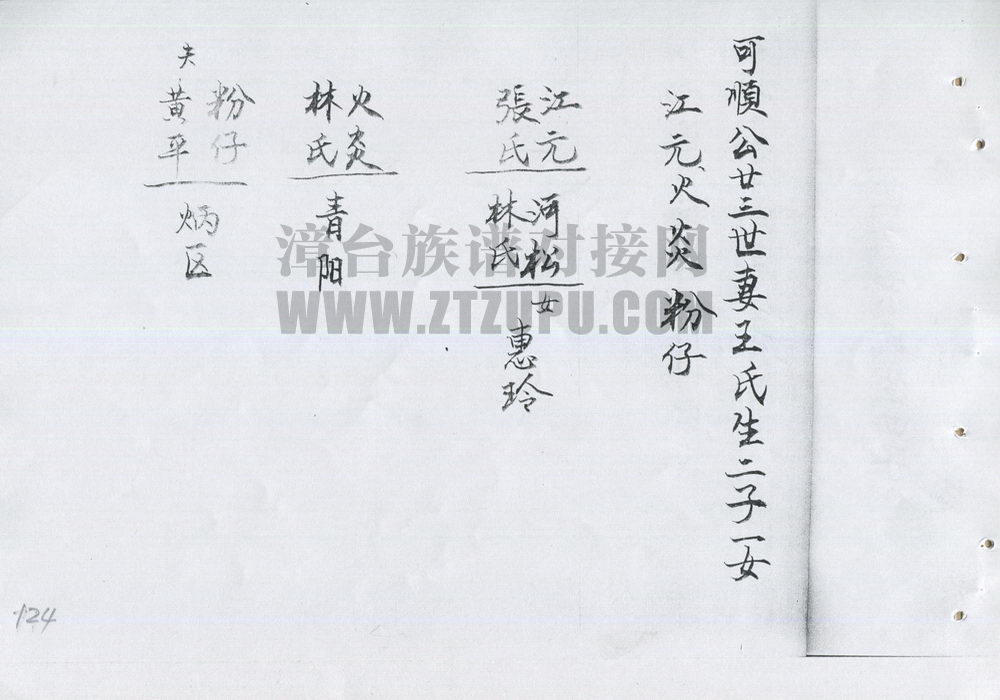 可順公廿三世妻王氏生二子一女
江元、火炎 粉仔
江元
張氏
河松
林氏
女 惠玲
火炎
林氏
青阳
粉仔
夫 黄平
炳区
漳台族谱对接网
WWW.ZTZUPU.COM
124